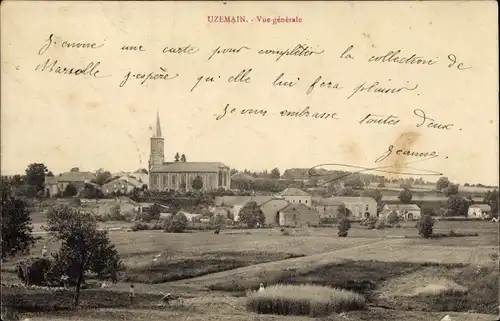 UZEMAIN. - Vue générale
J'envoie une carte pour complèter la collection de
Marcelle j'espère qu'elle lui fera plaisir.
Je vous embrasse toutes deux.
Jeanne